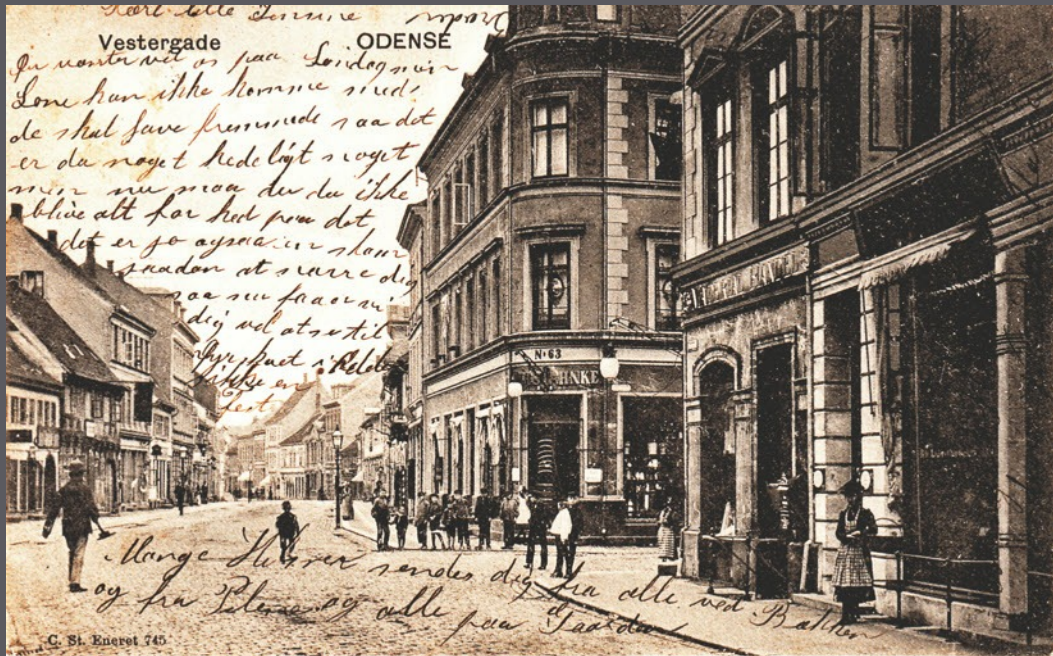 Kære lille
Vestergade ODENSE
vi venter vel os paa Søndag min
Lone kan ikke komme med
de skal have fremmede saa det
er da noget kedeligt noget
men nu maa du da ikke
blive alt for ked paa det
det er jo ogsaa en skam
saadan at narre dig
saa nu faaer vi
dig vel at se til
ikke en
fest
No 63
Mange Hilsner sendes dig fra alle ved Bakken
og fra og alle paa
C. St. Eneret 745